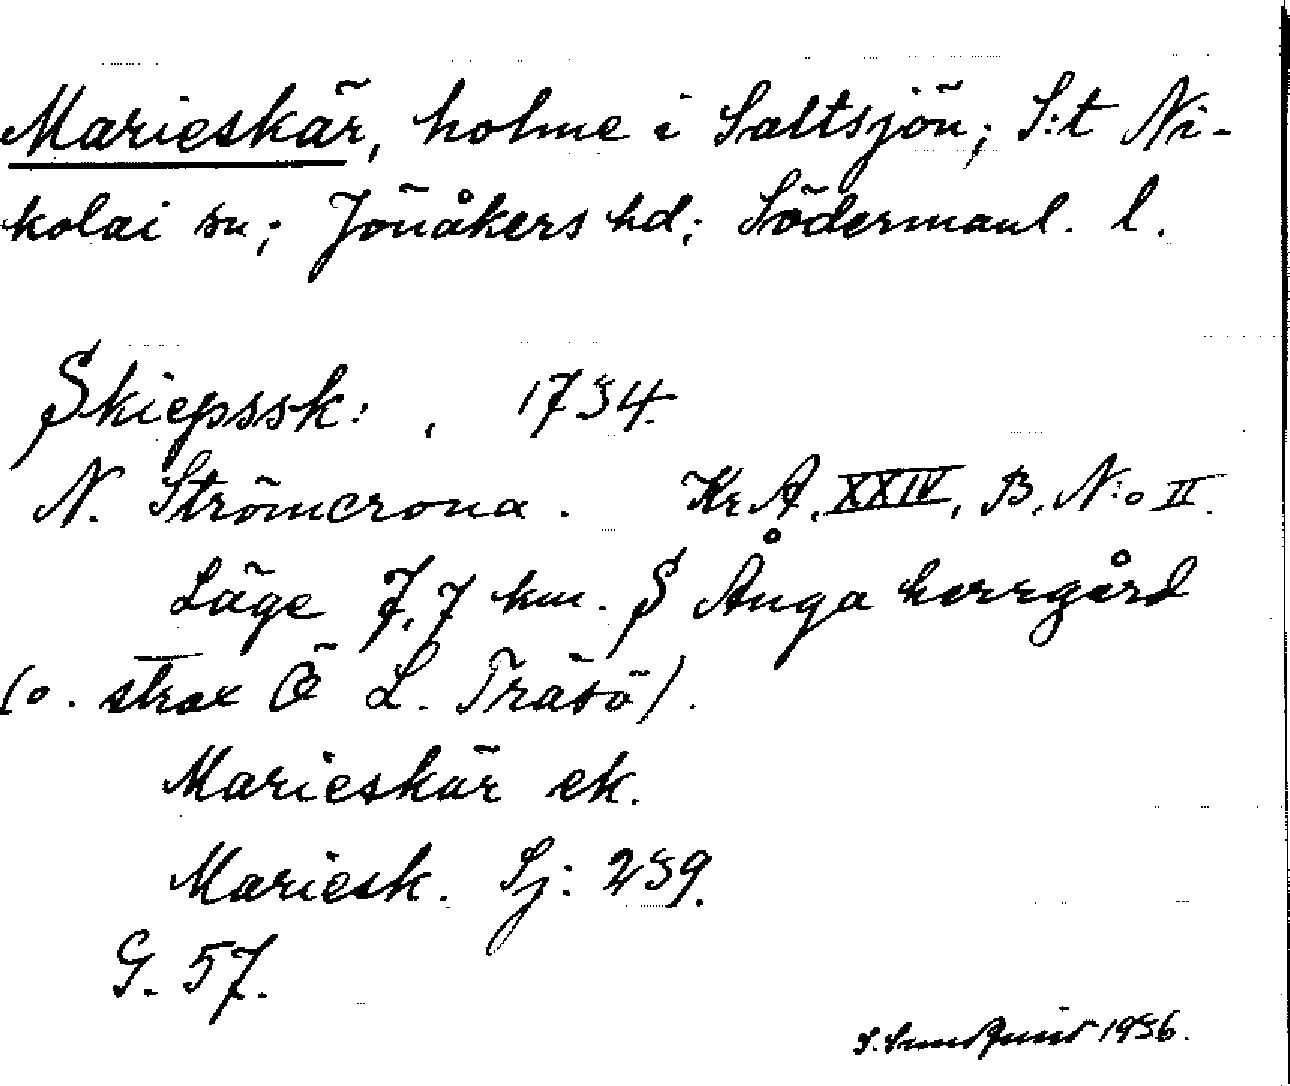 Marieskär, holme i Saltsjön; S:t Ni-
kolai sn; Jönåkers hd; Södermanl. l.
Skiepssk: , 1734.
N. Strömcrona. Kr. A. XXIV, B, N:o II.
Läge 7,7 km. S Ånga herrgård
(o. strax Ö L. Träsö).
Marieskär ek.
Mariesk. Sj: 239.
G. 57.
1936.